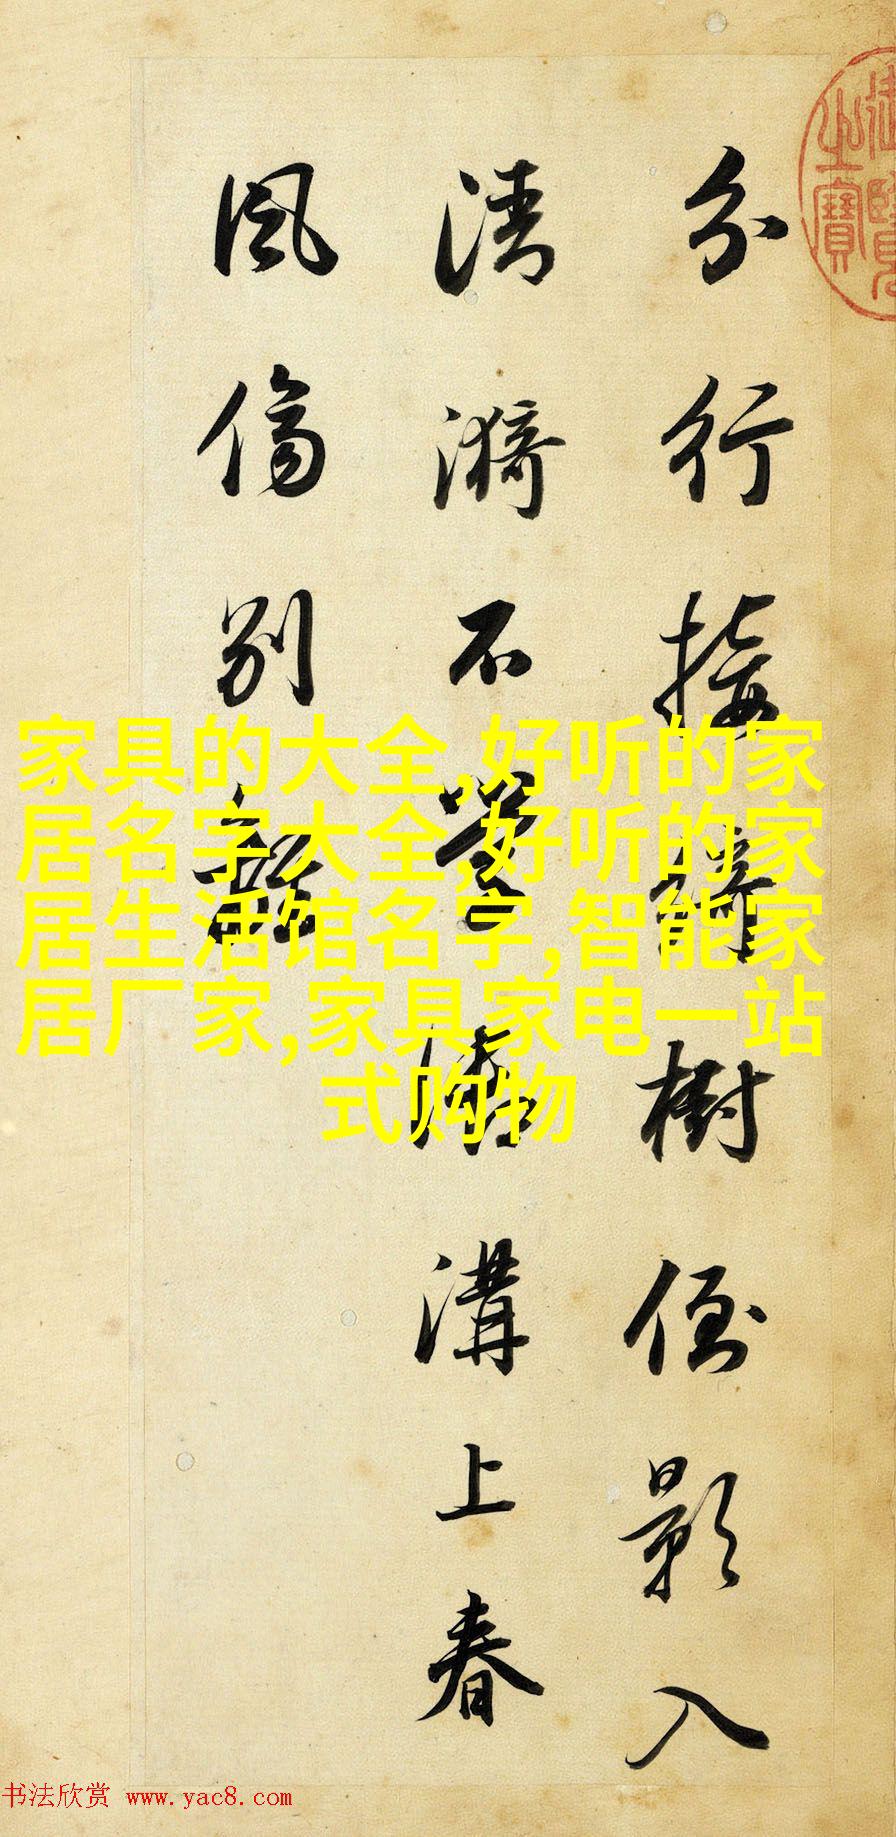 分行接綺樹倒影入
清漪不學御溝上春
風傷別離
家具的大全,好听的家
居名字大全,好听的家
居生活馆名字,智能家
居厂家,家具家电一站
式购物
之寶
书法欣赏 www.yac8.com